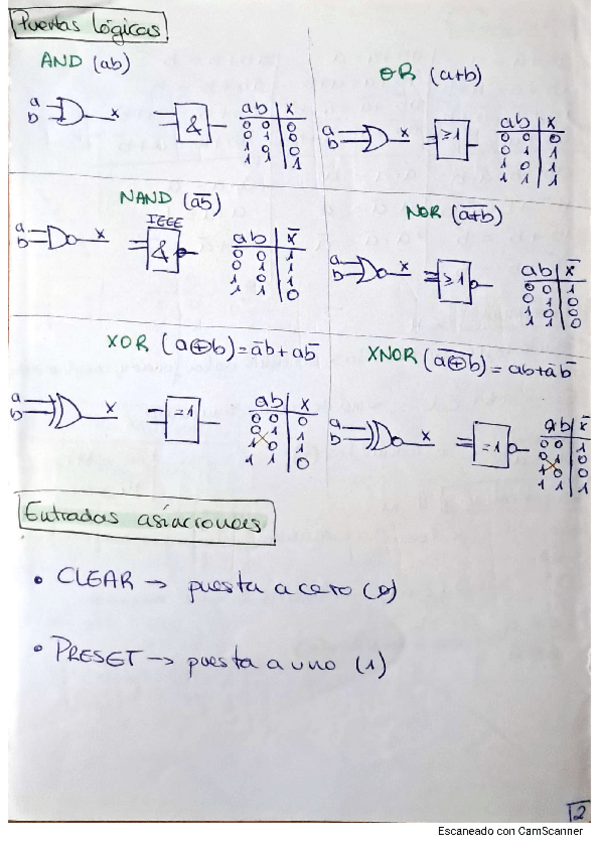 Puertas lógicas
AND (ab)
a
b
x
&
ab x
0 0 0
0 1 0
1 0 0
1 1 1
OR (a+b)
a
b
x
≥1
ab x
0 0 0
0 1 1
1 0 1
1 1 1
NAND (a̅b̅)
IEEE
a
b
x
&
ab x̅
0 0 1
0 1 1
1 0 1
1 1 0
NOR (a̅+̅b̅)
a
b
x
≥1
ab x̅
0 0 1
0 1 0
1 0 0
1 1 0
XOR (a⊕b) = a̅b + ab̅
a
b
x
=1
ab x
0 0 0
0 1
1 0
1 1 0
XNOR (a̅⊕̅b̅) = ab + a̅b̅
a
b
x
=1
ab x̅
0 0 1
0 1 0
1 0 0
1 1 1
Entradas asíncronas
• CLEAR → puesta a cero (0)
• PRESET → puesta a uno (1)
2
Escaneado con CamScanner